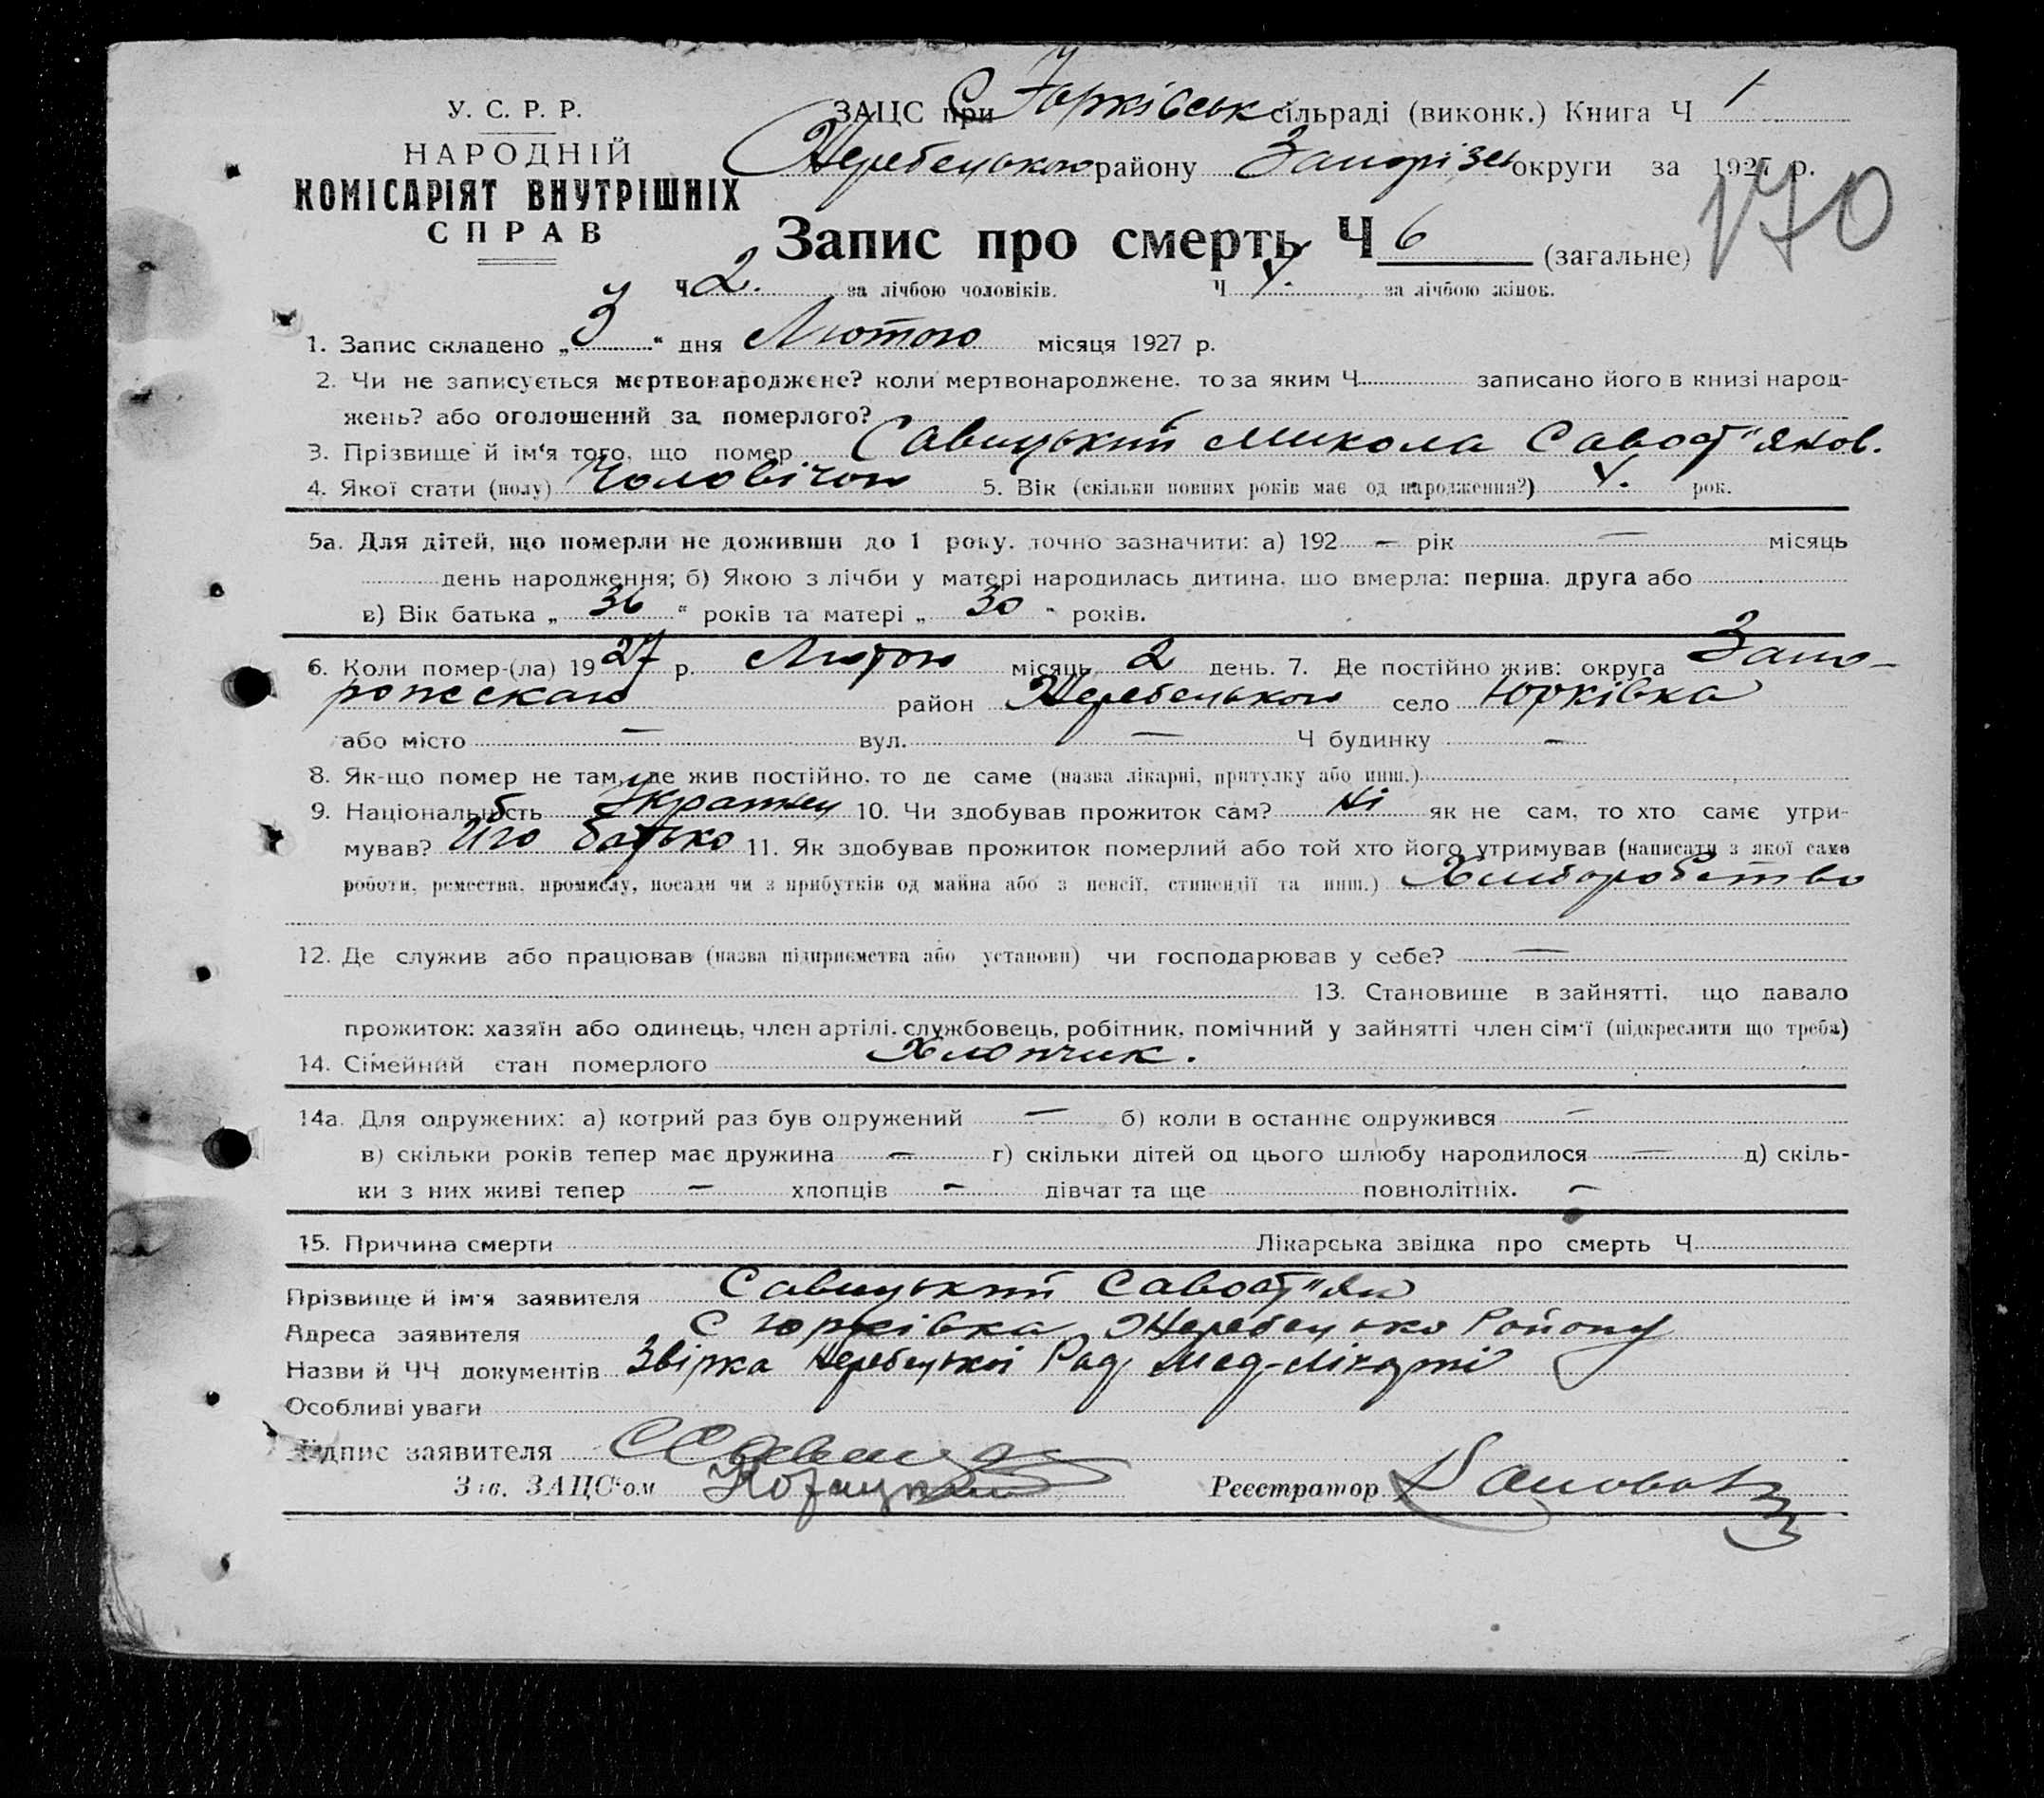 У. С. Р. Р.
НАРОДНІЙ
КОМІСАРІЯТ ВНУТРІШНІХ
СПРАВ
ЗАЦС при С Юрківськ сільраді (виконк.) Книга Ч 1
Жеребецького району Запорізь округи за 1927 р.
170
Запис про смерть Ч 6 (загальне)
Ч 2. за лічбою чоловіків. Ч 4. за лічбою жінок.
1. Запис складено „ 3 “ дня Лютого місяця 1927 р.
2. Чи не записується мертвонароджене? коли мертвонароджене, то за яким Ч записано його в книзі народ-
жень? або оголошений за померлого?
3. Прізвище й ім‘я того, що помер Савицький Микола Савост"янов.
4. Якої стати (полу) Чоловічою 5. Вік (скільки повних років має од народження?) 4. рок.
5а. Для дітей, що померли не доживши до 1 року, точно зазначити: а) 192 — рік — місяць
день народження; б) Якою з лічби у матері народилась дитина, що вмерла: перша, друга або
в) Вік батька „ 36 “ років та матері „ 30 “ років.
6. Коли помер-(ла) 19 27 р. Лютого місяць 2 день. 7. Де постійно жив: округа Запо-
рожскаго район Жеребецького село Юрківка
або місто — вул. — Ч будинку —
8. Як-що помер не там, де жив постійно, то де саме (назва лікарні, притулку або инш.)
9. Національність Українец 10. Чи здобував прожиток сам? Ні як не сам, то хто саме утри-
мував? Иго батько 11. Як здобував прожиток померлий або той хто його утримував (написати з якої саме
роботи, ремества, промислу, посади чи з прибутків од майна або з пенсії, стипендії та инш.) Хліборобство
12. Де служив або працював (назва підприємства або установи) чи господарював у себе? —
13. Становище в зайнятті, що давало
прожиток: хазяїн або одинець, член артілі, службовець, робітник, помічний у зайнятті член сім‘ї (підкреслити що треба)
14. Сімейний стан померлого Хлопчик.
14а. Для одружених: а) котрий раз був одружений — б) коли в останнє одружився —
в) скільки років тепер має дружина — г) скільки дітей од цього шлюбу народилося — д) скіль-
ки з них живі тепер — хлопців — дівчат та ще повнолітніх. —
15. Причина смерти Лікарська звідка про смерть Ч
Прізвище й ім‘я заявителя Савицький Савост"ян
Адреса заявителя С Юрківка Жеребецько Району
Назви й ЧЧ документів Звірка Жеребецької Рад,
Особливі уваги
Підпис заявителя
Зав. ЗАЦС‘ом
Реєстратор